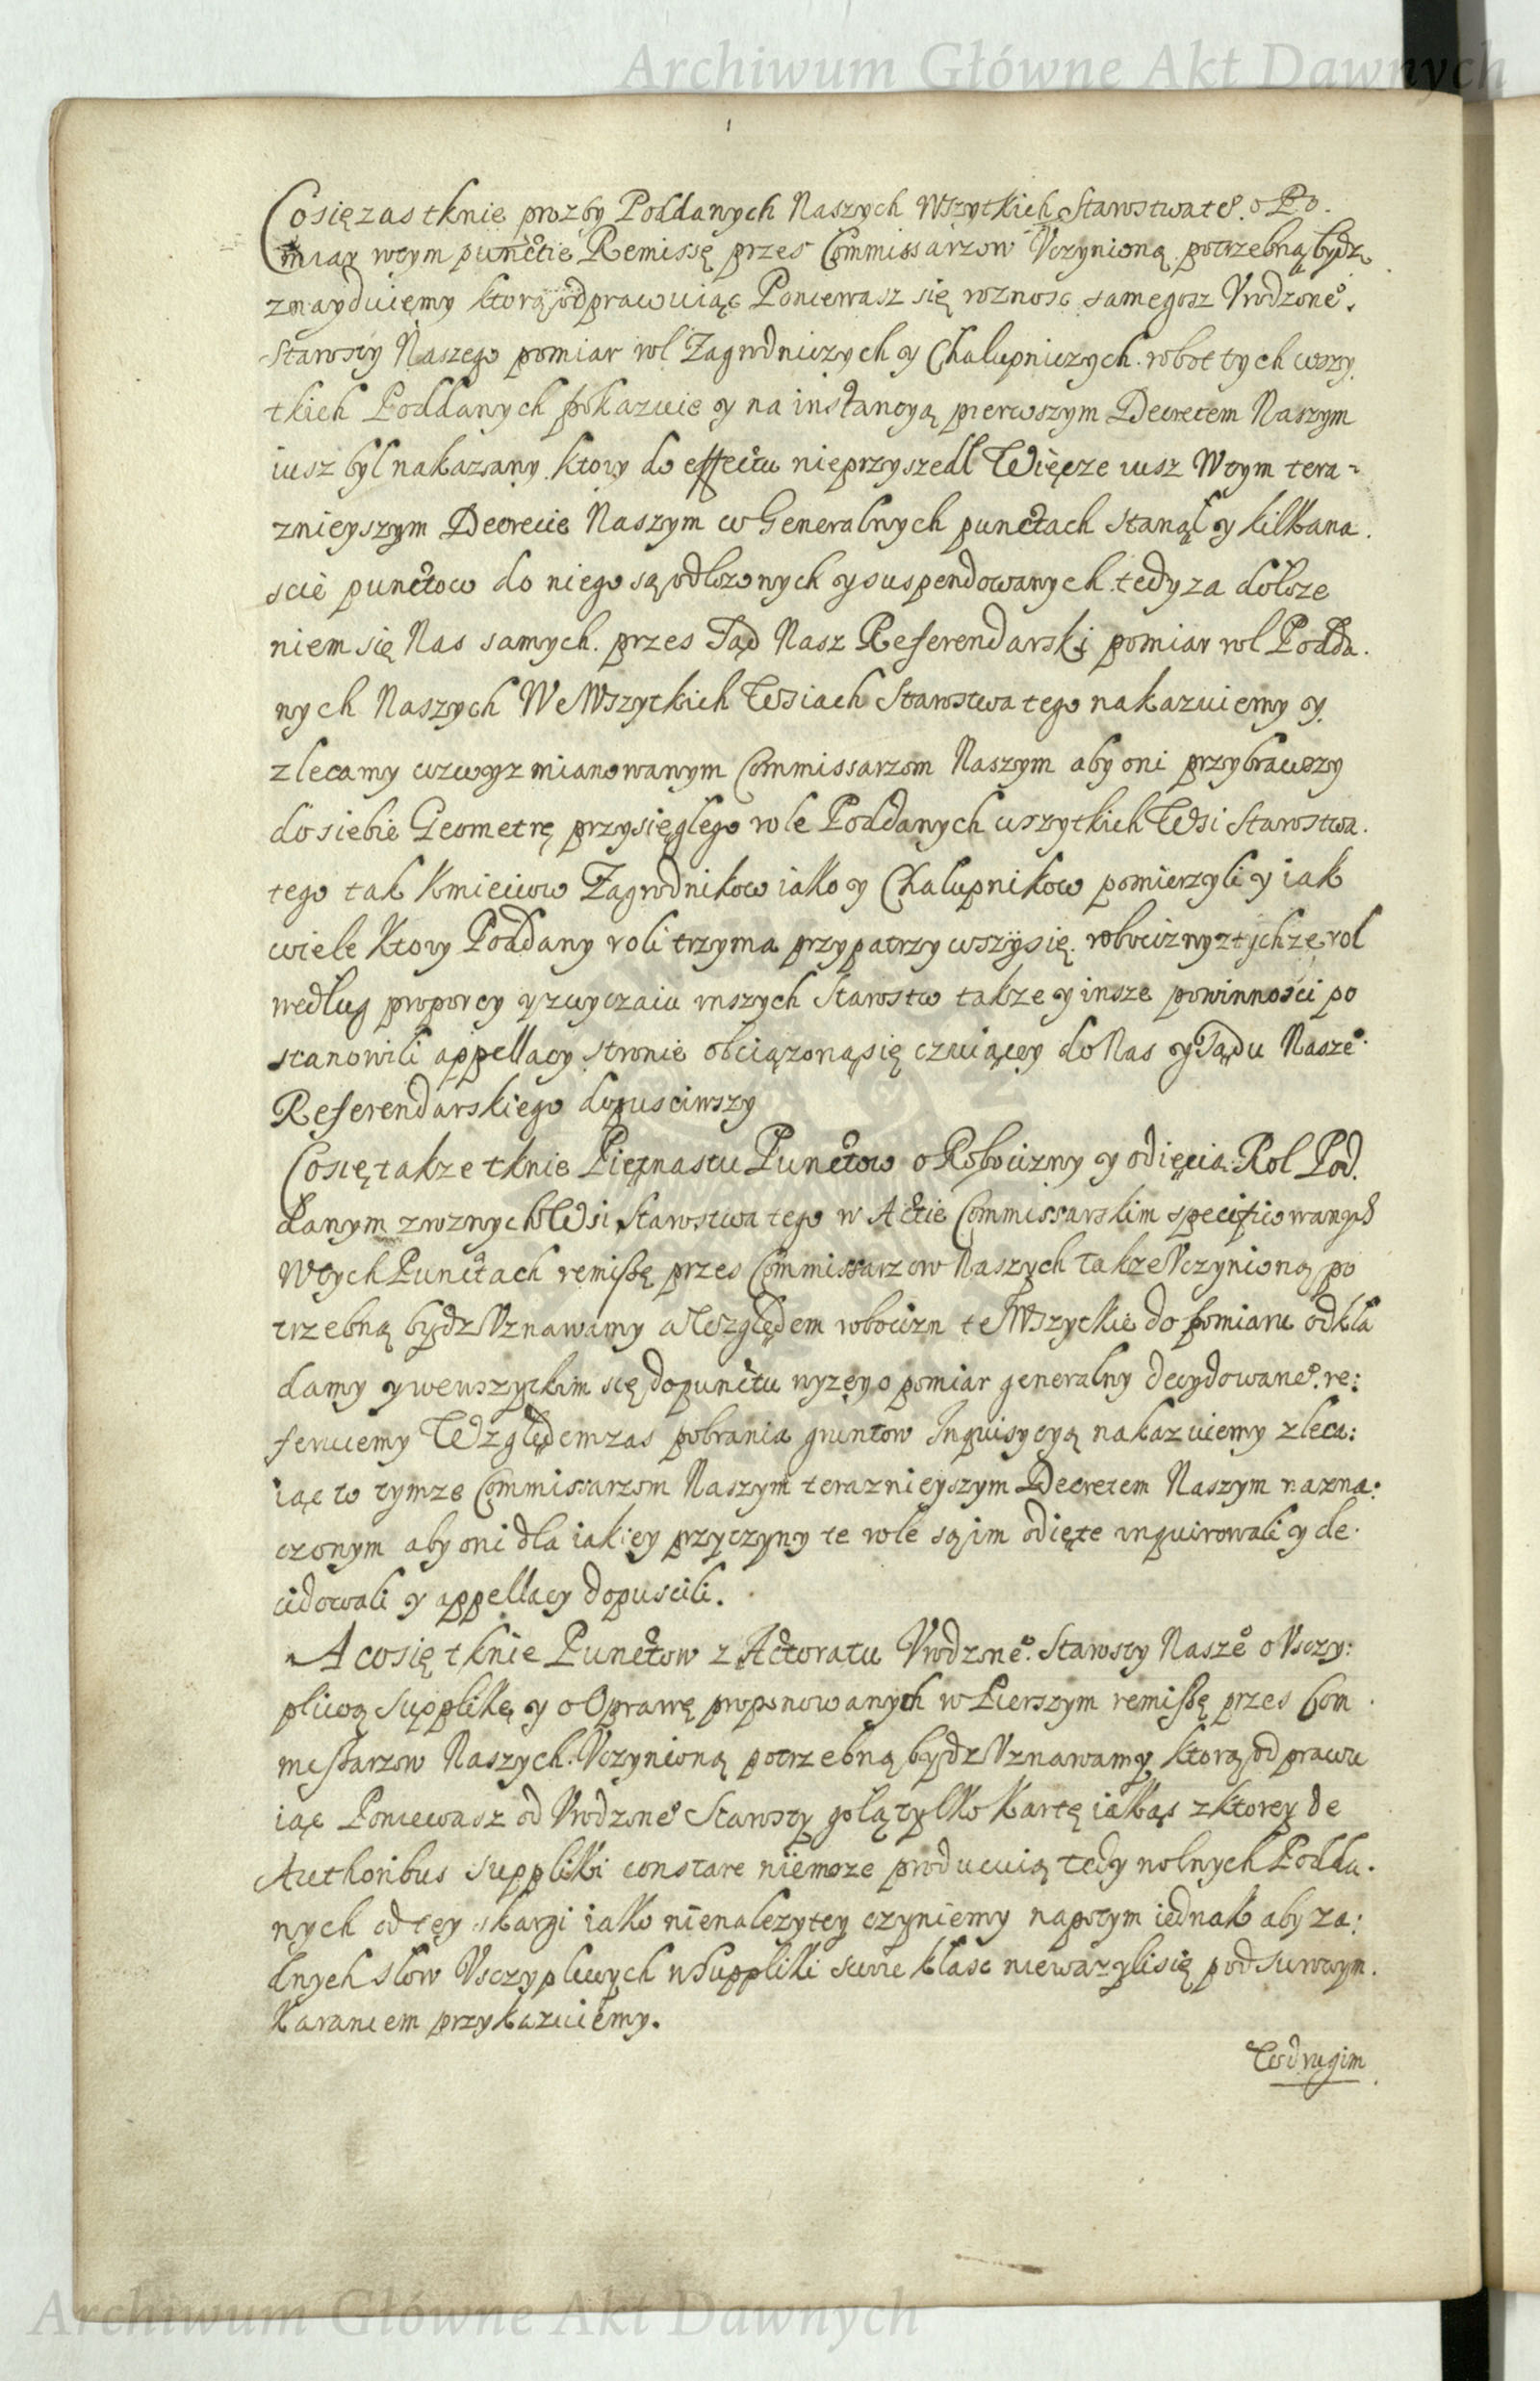 Archiwum Główne Akt Dawnych
Co się zas tknie prozby Poddanych Naszych Wszytkich Starostwa te°. o Po.
miar wtym punctie Remissę przes Commissarzow Vczynioną potrzebną bydz
znayduięmy ktorą odprawuiąc Poniewasz się roznosc samegosz Vrodzone°.
Starosty Naszego pomiar rol Zagrodniczych y Chalupniczych robot tych wszy.
tkich Poddanych pokazuie y na instancyą pierwszym Decretem Naszym
iusz byl nakazany ktory do effectu nieprzyszedl Więcze iusz Wtym tera-
znieyszym Decrecie Naszym w Generalnych punctach stanąl y kilkana.
scie punctow do niego są odlozonych y suspendowanych. tedy za doloze
niem się Nas samych. przes Sąd Nasz Referendarski pomiar rol Podda.
nych Naszych We Wszytkich Wsiach Starostwa tego nakazuiemy y.
zlecamy wzwyz mianowanym Commissarzom Naszym aby oni przybrawszy
do siebie Geometrę przysięglego role Poddanych wszytkich Wsi Starostwa.
tego tak Kmieciow Zagrodnikow iako y Chalupnikow pomierzyli y iak
wiele Ktory Poddany roli trzyma przypatrzywszysię. robocizny z tychze rol
według proporcy y zwyczaiu inszych Starostw takze y insze powinności po
stanowili appellacy stronie obciązoną się czuiącey do Nas y Sądu Nasze°.
Referendarskiego dopusciwszy
Co się takze tknie Piętnastu Punctow o Robocizny y odięcia Rol Pod.
danym z roznych Wsi Starostwa tego w Actie Commissarskim specificowanych
Wtych Punctach remissę przes Commissarzow Naszych takze Vczynioną po
trzebną bydz Vznawamy a Względem robocizn te Wszytkie do pomiaru odkla
damy y wewszytkim się do punctu wyzey o pomiar generalny decydowane°. re:
feruiemy Względem zas pobrania gruntow Inquisycyą nakazuiemy zleca:
iąc to tymze Commissarzom Naszym teraznieyszym Decretem Naszym nazna:
czonym aby oni dla iakiey przyczyny te role są im odięte inquirowali y de.
cidowali y appellacy dopuscili.
A co się tknie Punctow z Actoratu Vrodzone°. Starosty Nasze° o Vsczy:
pliwą Supplikę y o Oprawę proponowanych w Pierszym remissę przes Com.
missarzow Naszych. Vczynioną potrzebną bydz Vznawamy ktorą odprawu
iąc Poniewasz od Vrodzone° Starosty golą tylko Kartę iakąs z ktorey de
Authoribus suppliki constare niemoze producuią tedy wolnych Podda.
nych od tey skargi iako nienalezytey czyniemy napotym iednak aby za:
dnych slow Vsczypliwych w Suppliki swoie klasc niewazylisię pod surowym.
Karaniem przykazuiemy.
Wdrugim
Archiwum Główne Akt Dawnych